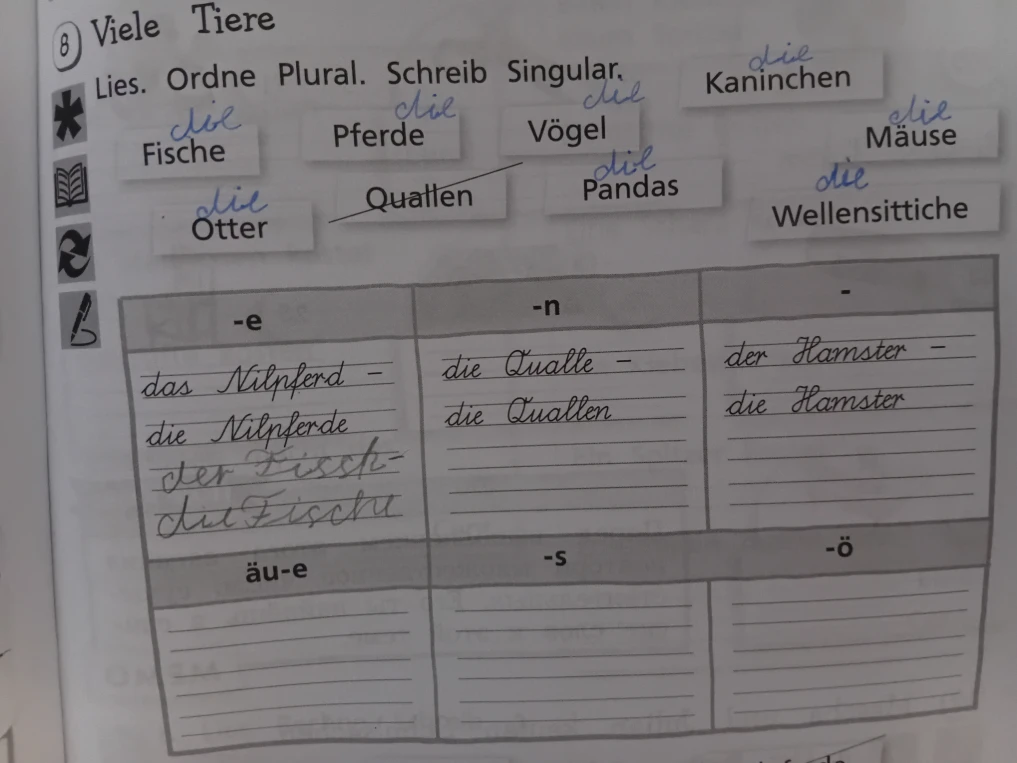 8 Viele Tiere
Lies. Ordne Plural. Schreib Singular.
die
Kaninchen
die
Fische
die
Pferde
die
Vögel
die
Mäuse
die
Otter
Quallen
die
Pandas
die
Wellensittiche
-e
-n
-
das Nilpferd –
die Nilpferde
der Fisch-
die Fische
die Qualle –
die Quallen
der Hamster –
die Hamster
äu-e
-s
-ö